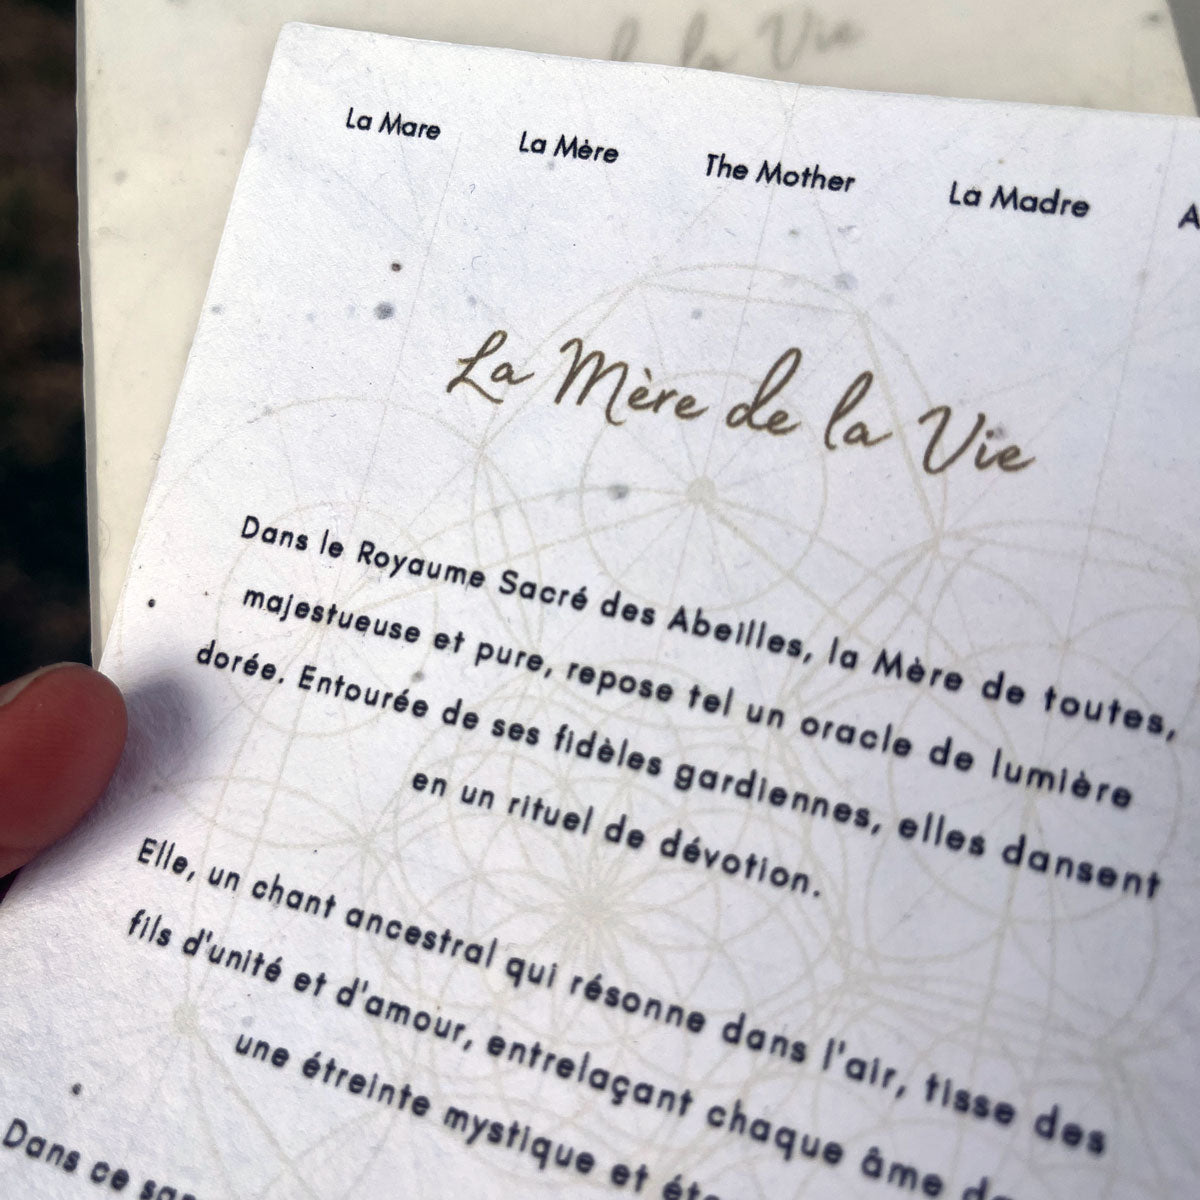 de la Vie
La Mare La Mère The Mother La Madre
La Mère de la Vie
Dans le Royaume Sacré des Abeilles, la Mère de toutes,
majestueuse et pure, repose tel un oracle de lumière
dorée. Entourée de ses fidèles gardiennes, elles dansent
en un rituel de dévotion.
Elle, un chant ancestral qui résonne dans l'air, tisse des
fils d'unité et d'amour, entrelaçant chaque âme
une étreinte mystique et
Dans ce